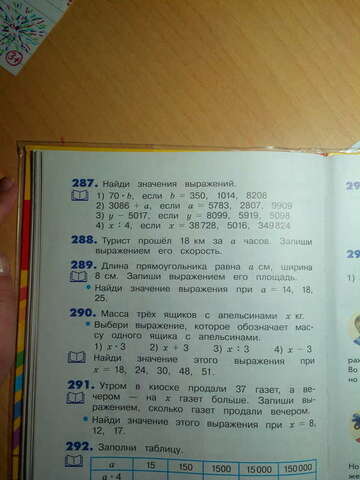 287. Найди значения выражений.
1) 70 · b, если b = 350, 1014, 8208
2) 3086 + a, если a = 5783, 2807, 9909
3) y − 5017, если y = 8099, 5919, 5098
4) x : 4, если x = 38728, 5016, 349824
288. Турист прошёл 18 км за a часов. Запиши
выражением его скорость.
289. Длина прямоугольника равна a см, ширина
8 см. Запиши выражением его площадь.
• Найди значение выражения при a = 14, 18,
25.
290. Масса трёх ящиков с апельсинами x кг.
• Выбери выражение, которое обозначает мас-
су одного ящика с апельсинами.
1) x · 3 2) x + 3 3) x : 3 4) x − 3
Найди значение этого выражения при
x = 18, 24, 30, 48, 51.
291. Утром в киоске продали 37 газет, а ве-
чером — на x газет больше. Запиши вы-
ражением, сколько газет продали вечером.
• Найди значение этого выражения при x = 8,
12, 17.
292. Заполни таблицу.
a 15 150 1500 15000 150000
a · 4